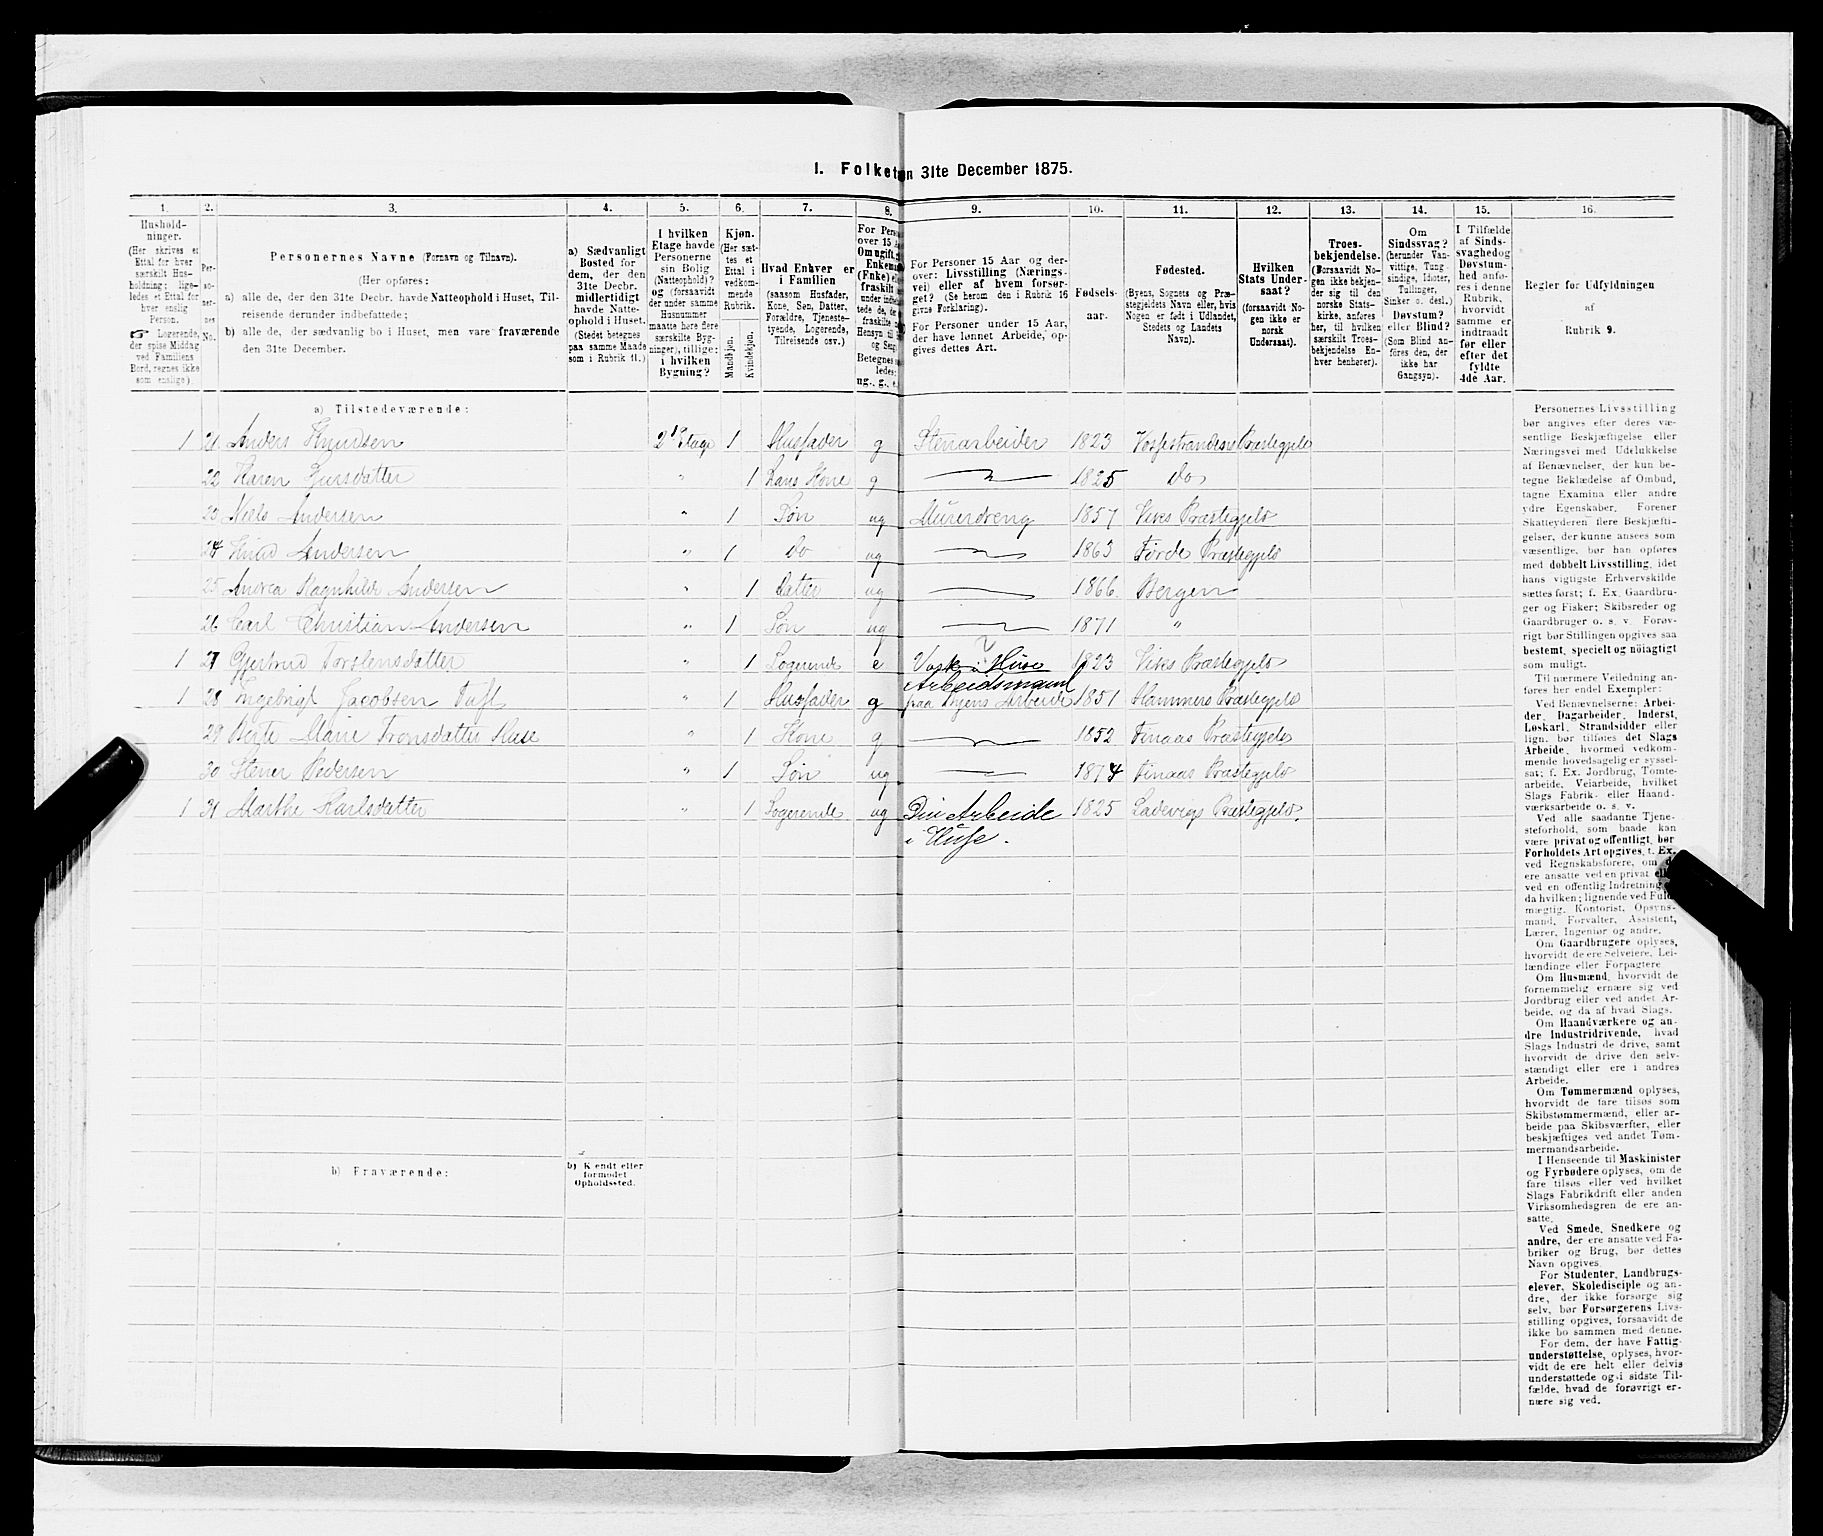 I. Folket n 31te December 1875.
1. 2. 3. 4. 5. 6. 7. 8. 9. 10. 11. 12. 13. 14. 15. 16.
Hushold-
ninger.
(Her skrives et
Ettal for hver
særskilt Hus-
holdning; lige-
ledes et Ettal for
hver enslig
Person.
☞ Logerende,
der spise Middag
ved Familiens
Bord, regnes ikke
som enslige).
Per-
so-
ner-
nes
No.
Personernes Navne (Fornavn og Tilnavn).
(Her opføres:
a) alle de, der den 31te Decbr. havde Natteophold i Huset, Til-
reisende derunder indbefattede;
b) alle de, der sædvanlig bo i Huset, men vare fraværende
den 31te December.
a) Sædvanligt
Bosted for
dem, der den
31te Decbr.
midlertidigt
havde Natte-
ophold i Huset.
(Stedet betegnes
paa samme Maade
som i Rubrik 11.)
I hvilken
Etage havde
Personerne
sin Bolig
(Natteophold)?
og (forsaavidt
der under samme
Husnummer
maatte høre flere
særskilte Byg-
ninger), tillige:
i hvilken
Bygning?
Kjøn.
(Her sæt-
tes et
Ettal i
vedkom-
mende
Rubrik.
Mandkjøn.
Kvindekjøn.
Hvad Enhver er
i Familien
(saasom Husfader,
Kone, Søn, Datter,
Forældre, Tjeneste-
tyende, Logerende,
Tilreisende osv.)
For Perso
over 15 A
Om ugift, g
Enkema
(Fnke) e
fraskilt
under indbe
tede de, de
fraskilte
Hensyn til
og Seng
Betegnes
ledes:
ug., g., e.
For Personer 15 Aar og der-
over: Livsstilling (Nærings-
vei) eller af hvem forsør-
get? (Se herom den i Rubrik 16
givne Forklaring).
For Personer under 15 Aar,
der have lønnet Arbeide, op-
gives dettes Art.
Fødsels-
aar.
Fødested.
(Byens, Sognets og Præ-
stegjeldets Navn eller, hvis
Nogen er født i Udlandet,
Stedets og Landets
Navn).
Hvilken
Stats Under-
saat?
(forsaavidt No-
gen ikke er
norsk
Undersaat).
Troes-
bekjendelse.
(Forsaavidt No-
gen ikke bekjen-
der sig til den
norske Stats-
kirke, anføres
her, til hvilken
særskilt Troes-
bekjendelse En-
hver henhører).
Om
Sindssvag?
(herunder Van-
vittige, Tung-
sindige, Idioter,
Tullinger,
Sinker o. desl.)
Døvstum?
eller Blind?
(Som Blind an-
føres den, der
ikke har
Gangsyn).
I Tilfælde
af Sinds-
svaghed og
Døvstum-
hed anfø-
res i denne
Rubrik,
hvorvidt
samme er
indtraadt
før eller
efter det
fyldte
4de Aar.
Regler for Udfyldningen
af
Rubrik 9.
a) Tilstedeværende:
1 21 Anders Knudsen 2 Etage 1 Husfader g Stenarbeider 1823 Præstegjeld
22 Karen " 1 Hans Kone g 1825 Do
23 Niels Andersen " 1 Søn ug Murerdreng 1857 Viks Præstegjeld
24 Knud Andersen " 1 Do ug 1863 Førde Præstegjeld
25 Andrea Ragnhilde Andersen " 1 Datter ug 1866. Bergen
26 Carl Christian Andersen " 1 Søn ug 1871 "
1 27 Gjertrud Torstensdatter " 1 Logerende e Vask i Huse 1823 Viks Præstegjeld
Arbeidsmand
1 28 Ingebrigt Jacobsen Tuft " 1 Husfader g paa Byens Arbeide 1851 Hammers Præstegjeld
29 Berte Marie Tronsdatter " 1 Kone g 1852 Finaas Præstegjeld
30 Stener Pedersen " 1 Søn ug 1874 Finaas Præstegjeld
1 31 Marthe Karlsdatter " 1 Logerende ug Div Arbeide 1825 Ladevigs Præstegjeld.
i Huse.
b) Fraværende:
b) Kendt eller
formodet
Opholdssted.
Personernes Livsstilling
bør angives efter deres væ-
sentlige Beskjæftigelse eller
Næringsvei med Udelukkelse
af Benævnelser, der kun be-
tegne Beklædelse af Ombud,
tagne Examina eller andre
ydre Egenskaber. Forener
Skatteyderen flere Beskjæfti-
gelser, der kunne ansees som
væsentlige, bør han opføres
med dobbelt Livsstilling, idet
hans vigtigste Erhvervskilde
sættes først; f. Ex. Gaardbru-
ger og Fisker; Skibsreder og
Gaardbruger o. s. v. Forøv-
rigt bør Stillingen opgives saa
bestemt, specielt og nøiagtigt
som muligt.
Til nærmere Veiledning an-
føres her endel Exempler:
Ved Benævnelserne: Arbei-
der, Dagarbeider, Inderst,
Løskarl, Strandsidder eller
lign. bør tilføies det Slags
Arbeide, hvormed vedkom-
mende hovedsagelig er syssel-
sat; f. Ex. Jordbrug, Tomte-
arbeide, Veiarbeide, hvilket
Slags Fabrik- eller Haand-
værksarbeide o. s. v.
Ved alle saadanne Tjene-
steforhold, som baade kan
være privat og offentligt, bør
Forholdets Art opgives, t. Ex.
ved Regnskabsførere, om d
ere ansatte ved en privat ell
ved en offentlig Indretning
da hvilken; lignende ved Fuld-
mægtig, Kontorist, Opsyns-
mand, Forvalter, Assistent,
Lærer, Ingeniør og andre.
Om Gaardbrugere oplyses,
hvorvidt de ere Selveiere, Lei-
lændinge eller Forpagtere
Om Husmænd, hvorvidt de
fornemmelig ernære sig ved
Jordbrug eller ved andet Ar-
beide, og da af hvad Slags.
Om Haandværkere og an-
dre Industridrivende, hvad
Slags Industri de drive, samt
hvorvidt de drive den selv-
stændigt eller ere i andres
Arbeide.
Om Tømmermænd oplyses,
hvorvidt de fare tilsøs som
Skibstømmermænd, eller ar-
beide paa Skibsværfter, eller
beskjæftiges ved andet Tøm-
mermandsarbeide.
I Henseende til Maskinister
og Fyrbødere oplyses, om de
fare tilsøs eller ved hvilket
Slags Fabrikdrift eller anden
Virksomhedsgren de ere an-
satte.
Ved Smede, Snedkere og
andre, der ere ansatte ved Fa-
briker og Brug, bør dettes
Navn opgives.
For Studenter, Landbrugs-
elever, Skoledisciple og an-
dre, der ikke forsørge sig
selv, bør Forsørgerens Livs-
stilling opgives, forsaavidt de
ikke bo sammen med denne.
For dem, der have Fattig-
understøttelse, oplyses, hvor-
vidt de ere helt eller delvis
understøttede og i sidste Til-
fælde, hvad de forøvrigt er-
nære sig ved.